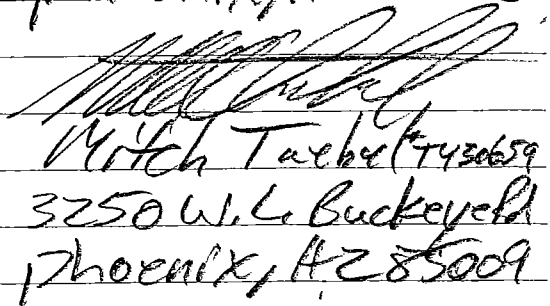 Mitch Taebel #T430659
3250 W. L. Buckeye Rd
Phoenix, AZ 85009